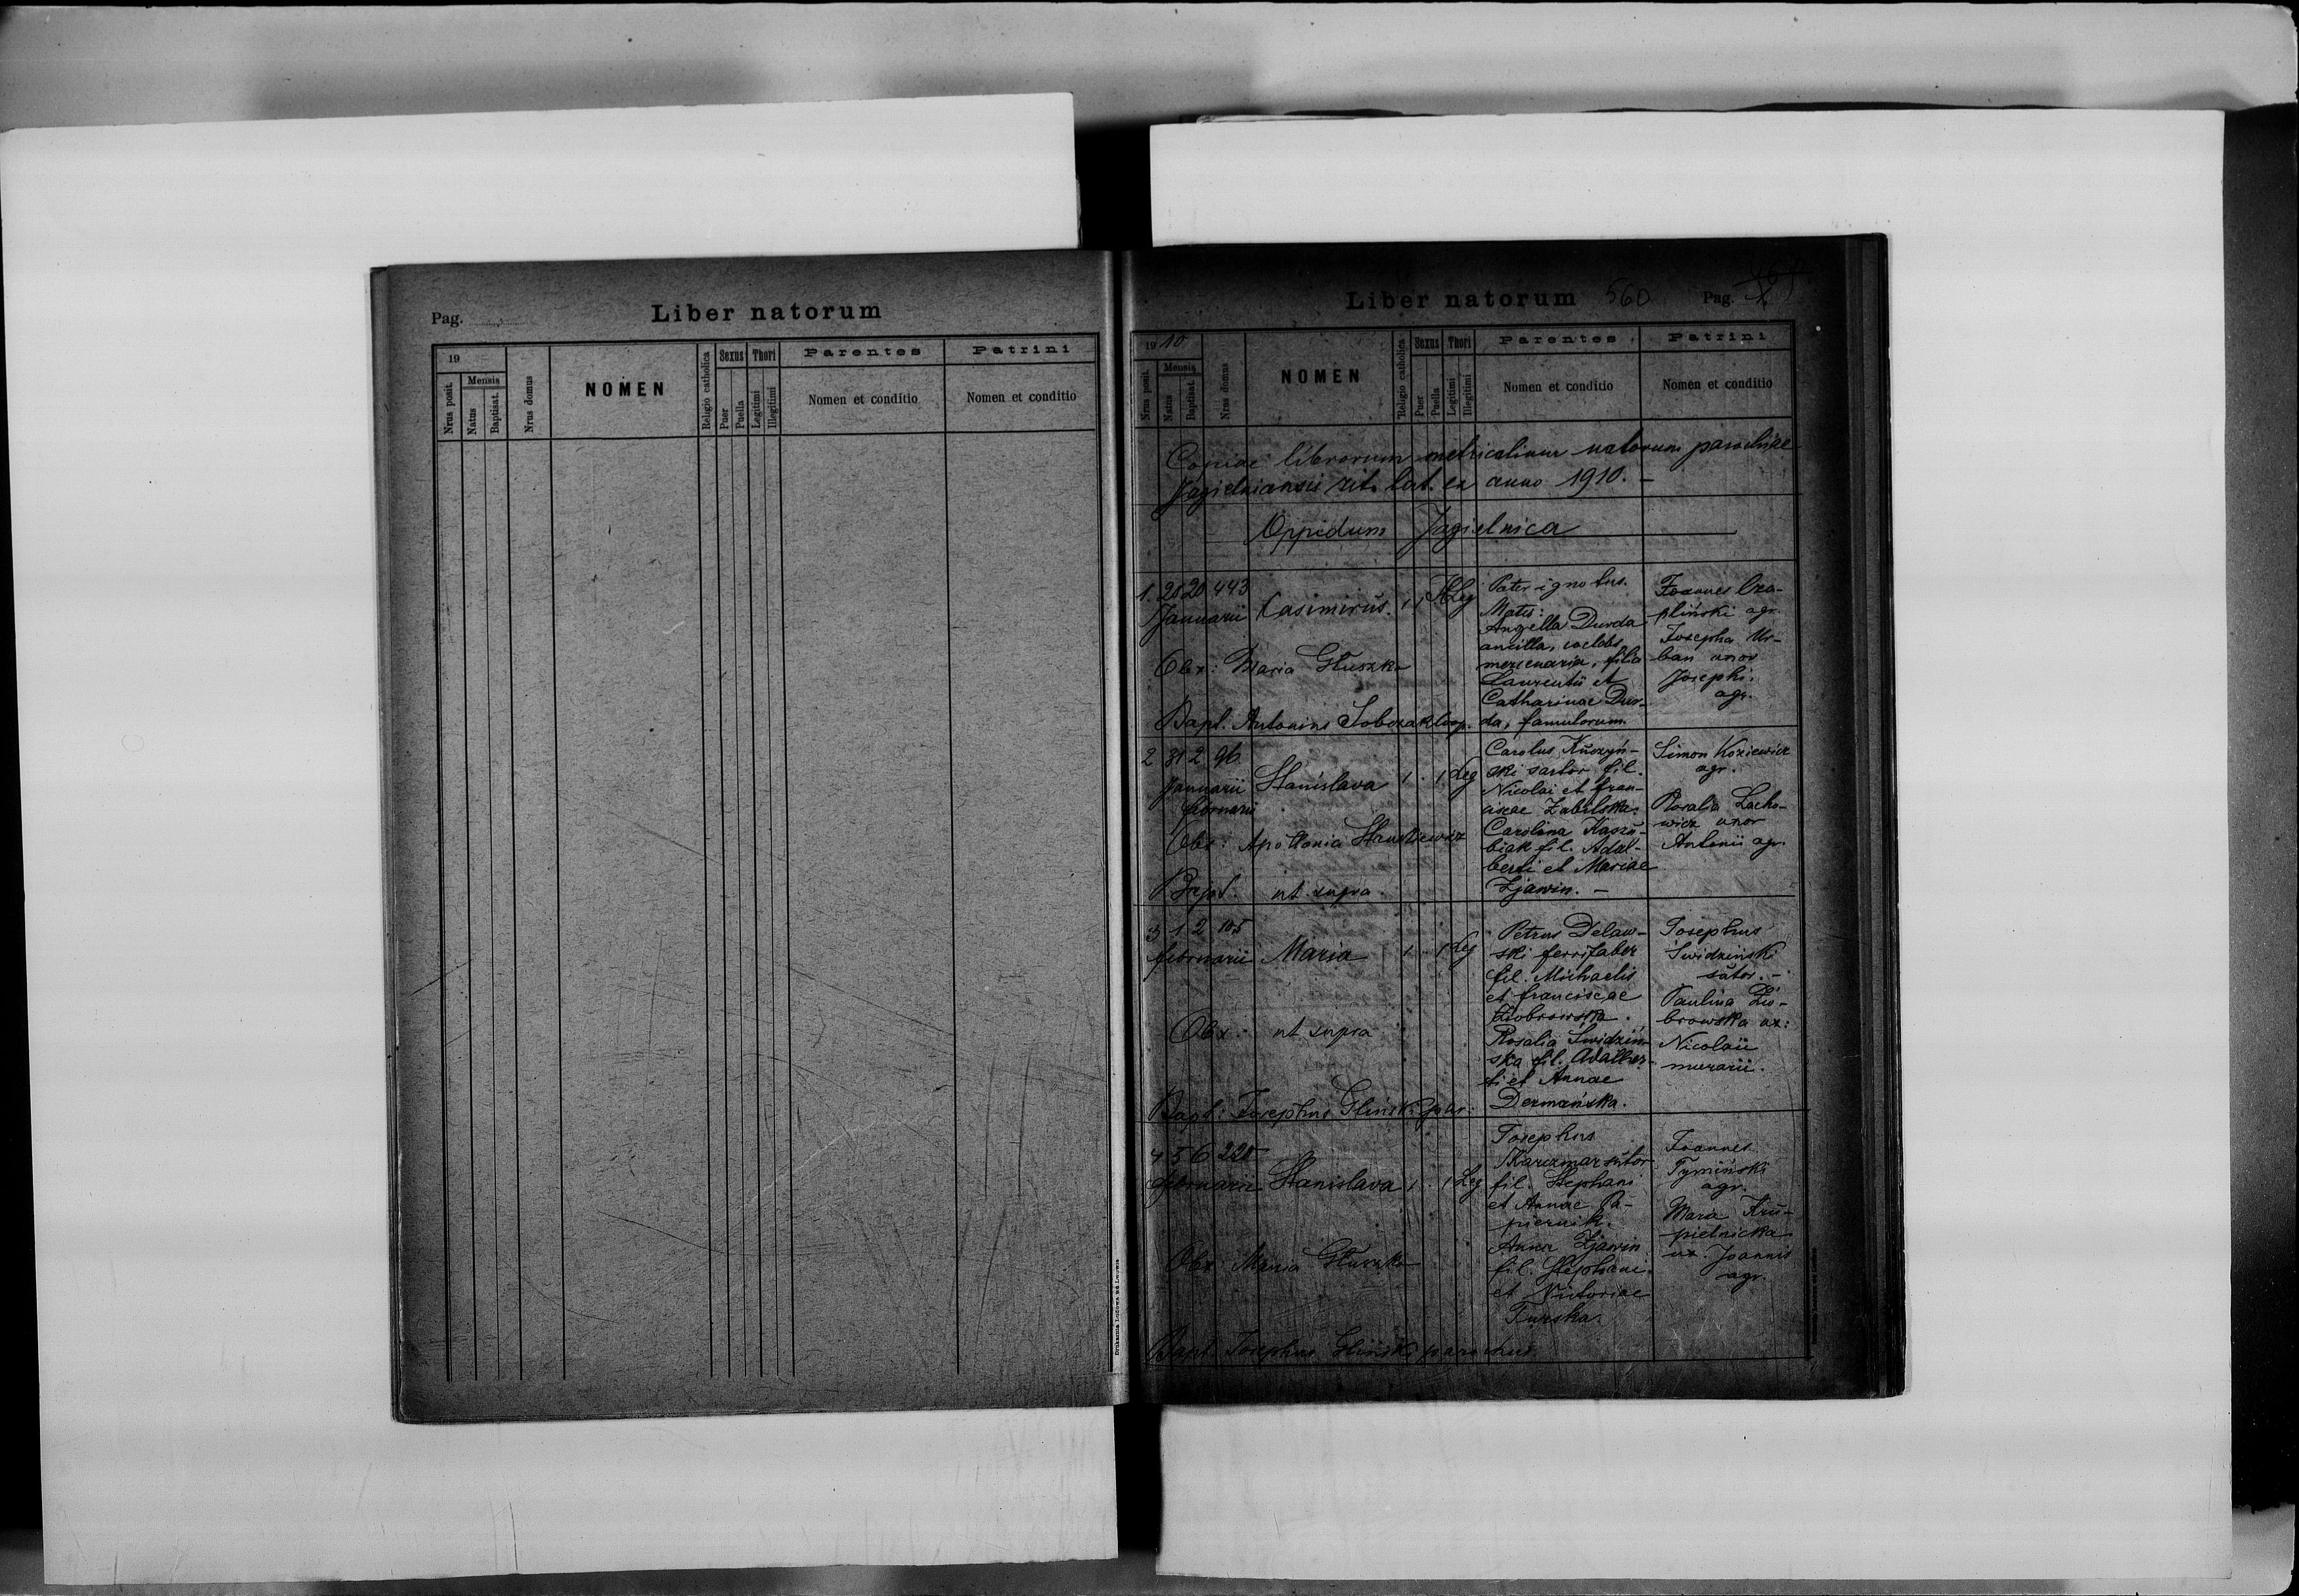 Pag.
Liber natorum
19
Nrus posit.
Mensis
Natus
Baptisat.
Nrus domus
NOMEN
Religio catholica
Sexus
Puer
Puella
Thori
Legitimi
Illegitimi
Parentes
Nomen et conditio
Patrini
Nomen et conditio
Drukarnia Ludowa we Lwowie
Liber natorum
560
Pag.
1910
Nrus posit.
Mensis
Natus
Baptisat.
Nrus domus
NOMEN
Religio catholica
Sexus
Puer
Puella
Thori
Legitimi
Illegitimi
Parentes
Nomen et conditio
Patrini
Nomen et conditio
Copiae librorum metricalium natorum parochiae
Jagielnicensis rit. lat. ex anno 1910. -
Oppidum Jagielnica
1. 20 20 443
Januarii Casimirus. 1 1 Illeg
Obx: Maria Głuszko
Bapt. Antonius Sobczak coop.
Pater ignotus.
Mater:
Angella Durda
ancilla, coelebs,
mercenaria, filia
Laurentii et
Catharinae Dur-
da, famulorum.
Joannes Cza-
pliński agr.
Josepha Ur-
ban uxor
Josephi
agr.
2 31 2 96
Januarii Stanislava 1 . 1 Leg
februarii
Obx: Apollonia
Bapt. ut supra
Carolus Kuczyń-
ski sartor fil.
Nicolai et fran-
ciscae Zabilska.
Carolina Kaszu-
biak fil. Adal-
berti et Mariae
Zjawin. -
Simon Koziewicz
agr.
Rosalia Lacho-
wicz uxor
Antonii agr.
3 1 2 105
februarii Maria 1 . 1 Leg
Obx: ut supra
Bapt: Josephus Gliński
Petrus Delaw-
ski ferrifaber
fil. Michaelis
et franciscae
Ziobrowska.
Rosalia Swidziń-
ska fil. Adalber-
ti et Annae
Dermańska.
Josephus
Świdziński
sutor. -
Paulina Zio-
browska ux:
Nicolaii
murarii.
4 5 6 228
februarii Stanislava 1 . 1 Leg
Obx: Maria Głuszko
Bapt. Josephus Gliński parochus
Josephus
Karczmar sutor
fil. Stephani
et Annae Pa-
piernik.
Anna Zjawin
fil. Stephani
et Victoriae
Turska.
Joannes
Tymiński
agr.
Maria Kru-
pielnicka
ux. Joannis
agr.